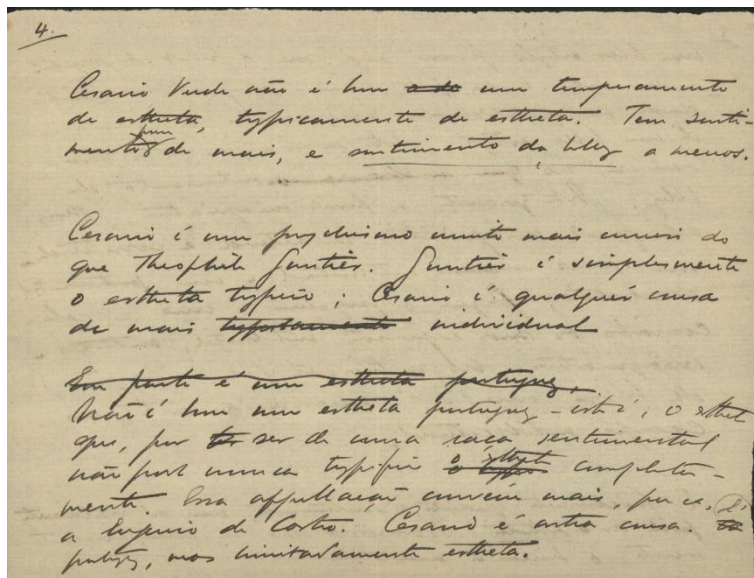 4.
Cesario Verde não é bem um temperamento
de estheta, typicamente de estheta. Tem senti-
mento de mais, e sentimento da belleza a menos.
Cesario é um psychismo muito mais curioso do
que Theophile Gautier. Gautier é simplesmente
o estheta typico; Cesario é qualquér cousa
de mais individual
Em parte é um estheta portuguez,
Não é bem um estheta portuguez – isto é, o esthet
que, por ser de uma raça sentimental
não pode nunca typificar o estheta completa-
mente. Essa appellação convém mais, por ex.,
a Eugenio de Castro. Cesario é outra cousa. É
portuguez, mas limitadamente estheta.